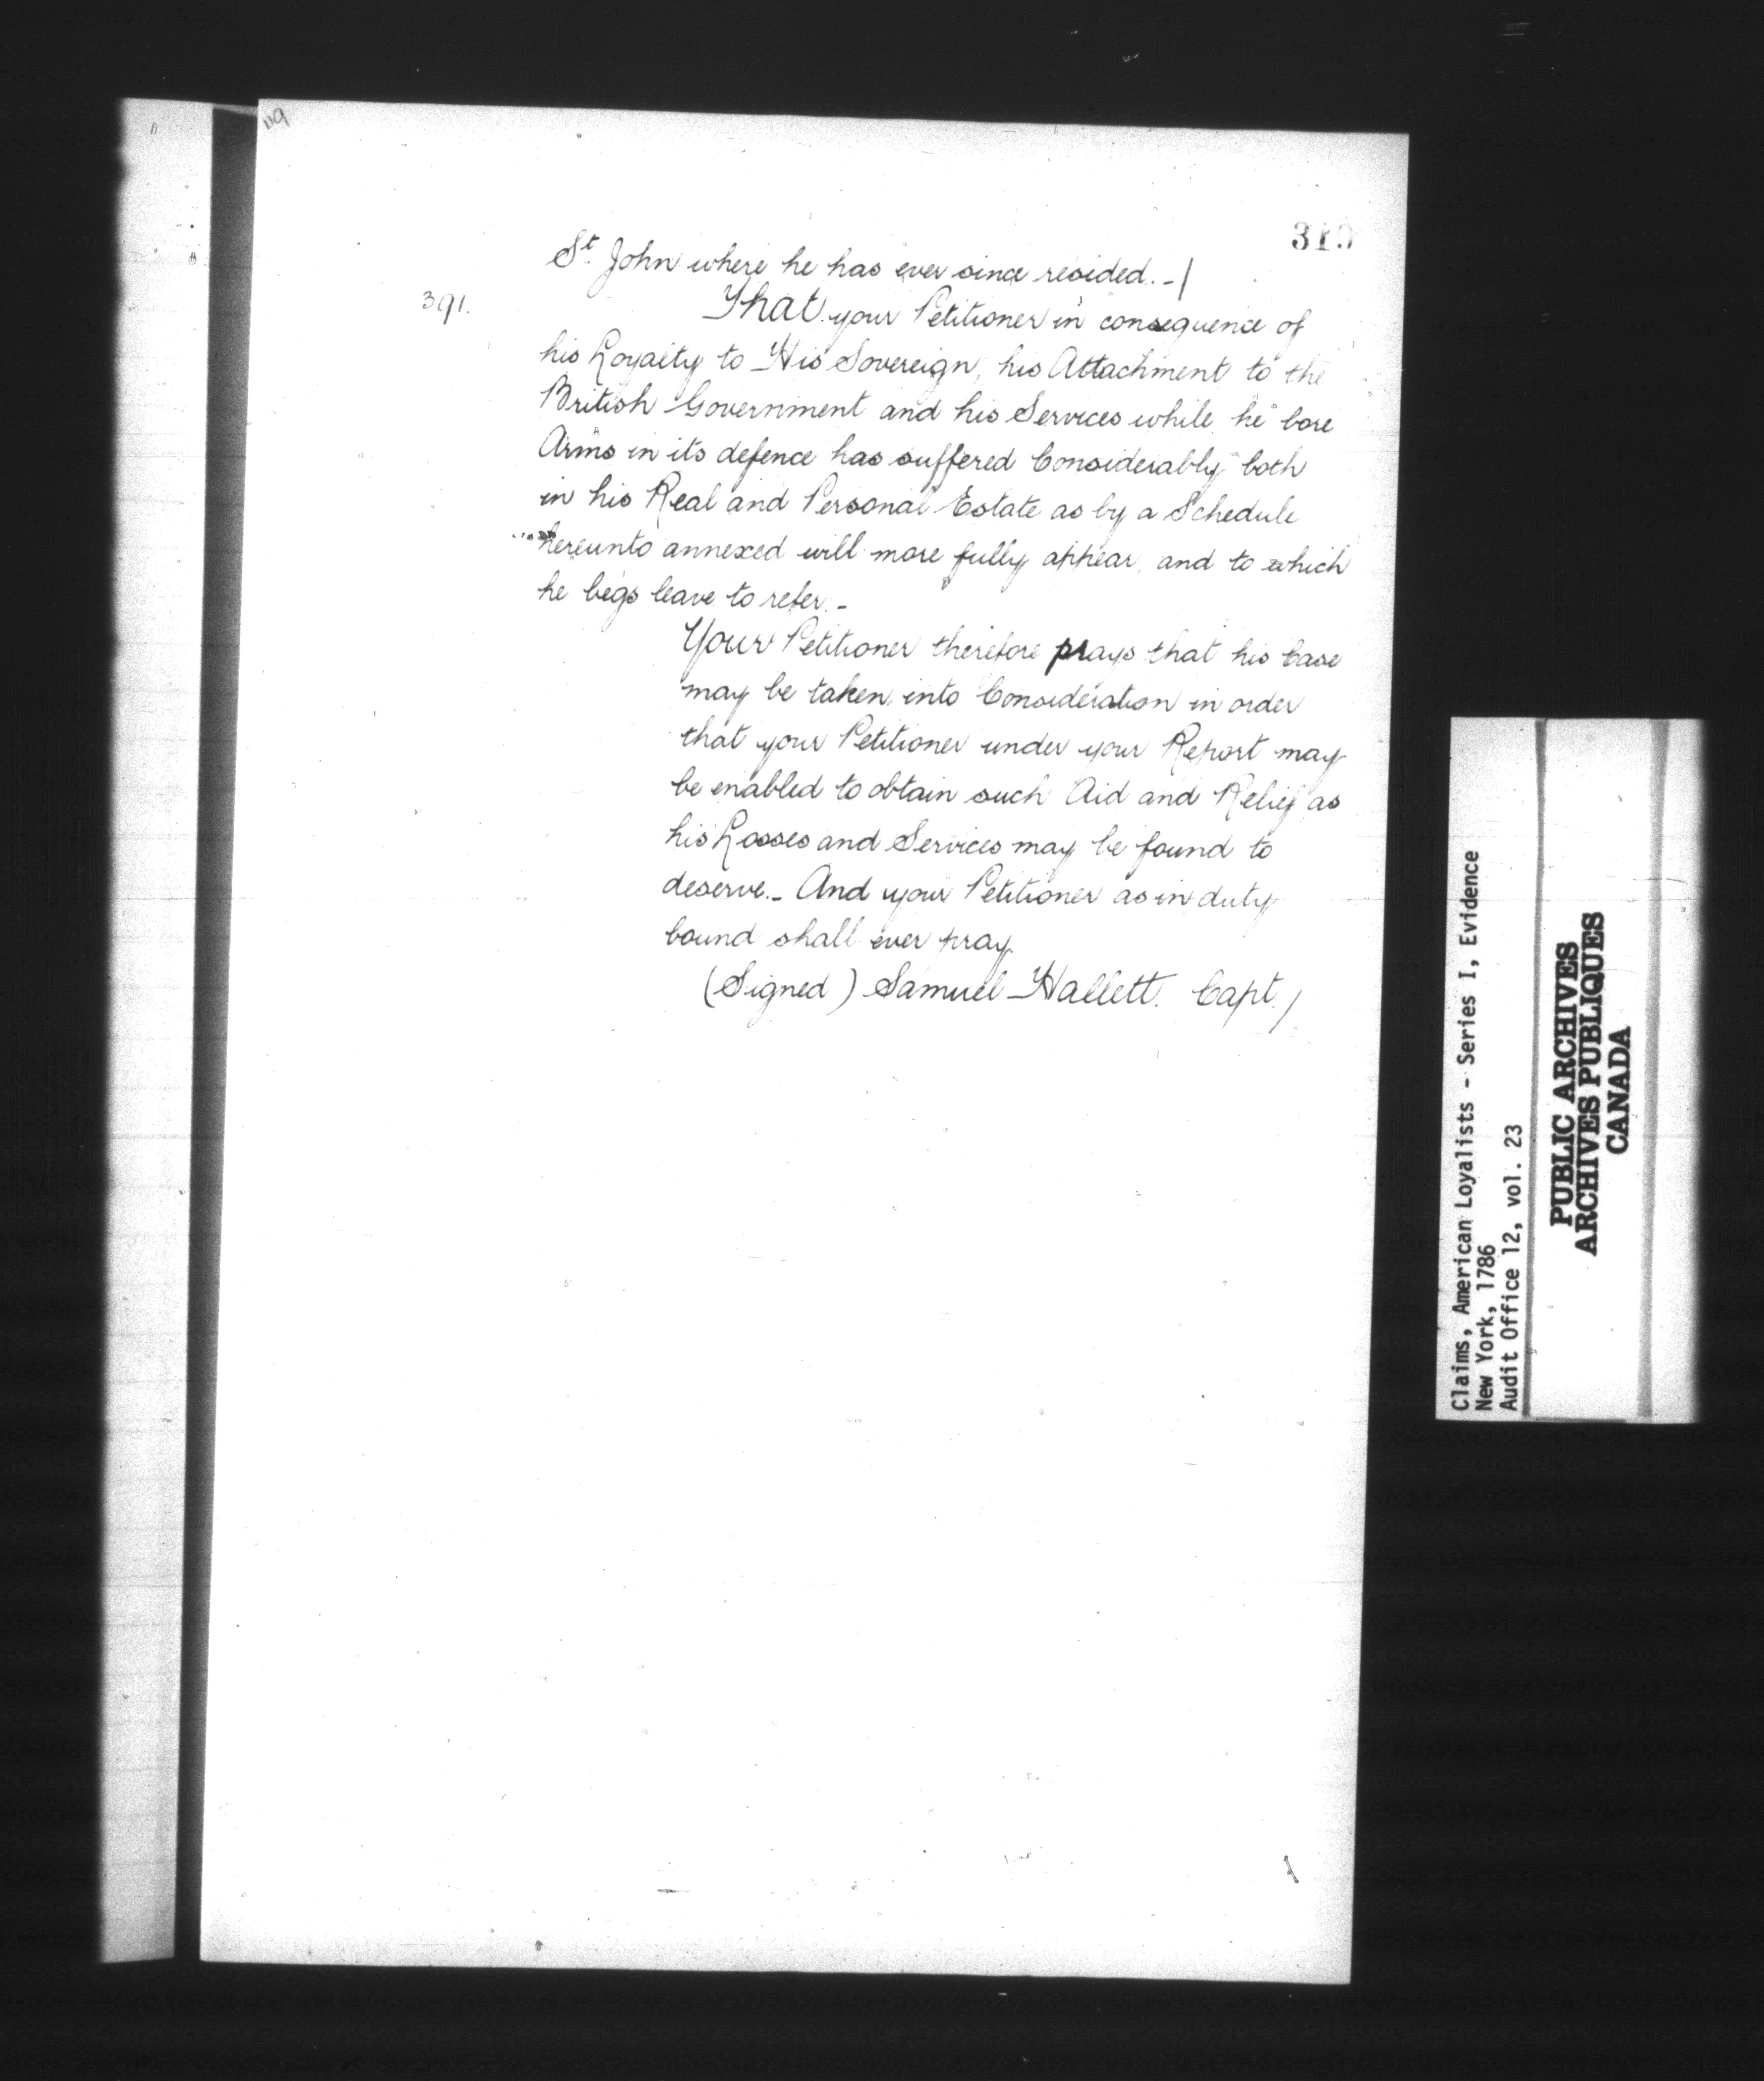 St. John where he has ever since resided. - /
391.
That your Petitioner in consequence of
his Loyalty to His Sovereign, his Attachment to the
British Government and his Services while he bore
Arms in its defence has suffered Considerably both
in his Real and Personal Estate as by a Schedule
hereunto annexed will more fully appear, and to which
he begs leave to refer. -
Your Petitioner therefore prays that his Case
may be taken into Consideration in order
that your Petitioner under your Report may
be enabled to obtain such Aid and Relief as
his Losses and Services may be found to
deserve. - And your Petitioner as in duty
bound shall ever pray
(Signed) Samuel Hallett. Capt. /
Claims, American Loyalists - Series I, Evidence
New York, 1786
Audit Office 12, vol. 23
PUBLIC ARCHIVES
ARCHIVES PUBLIQUES
CANADA